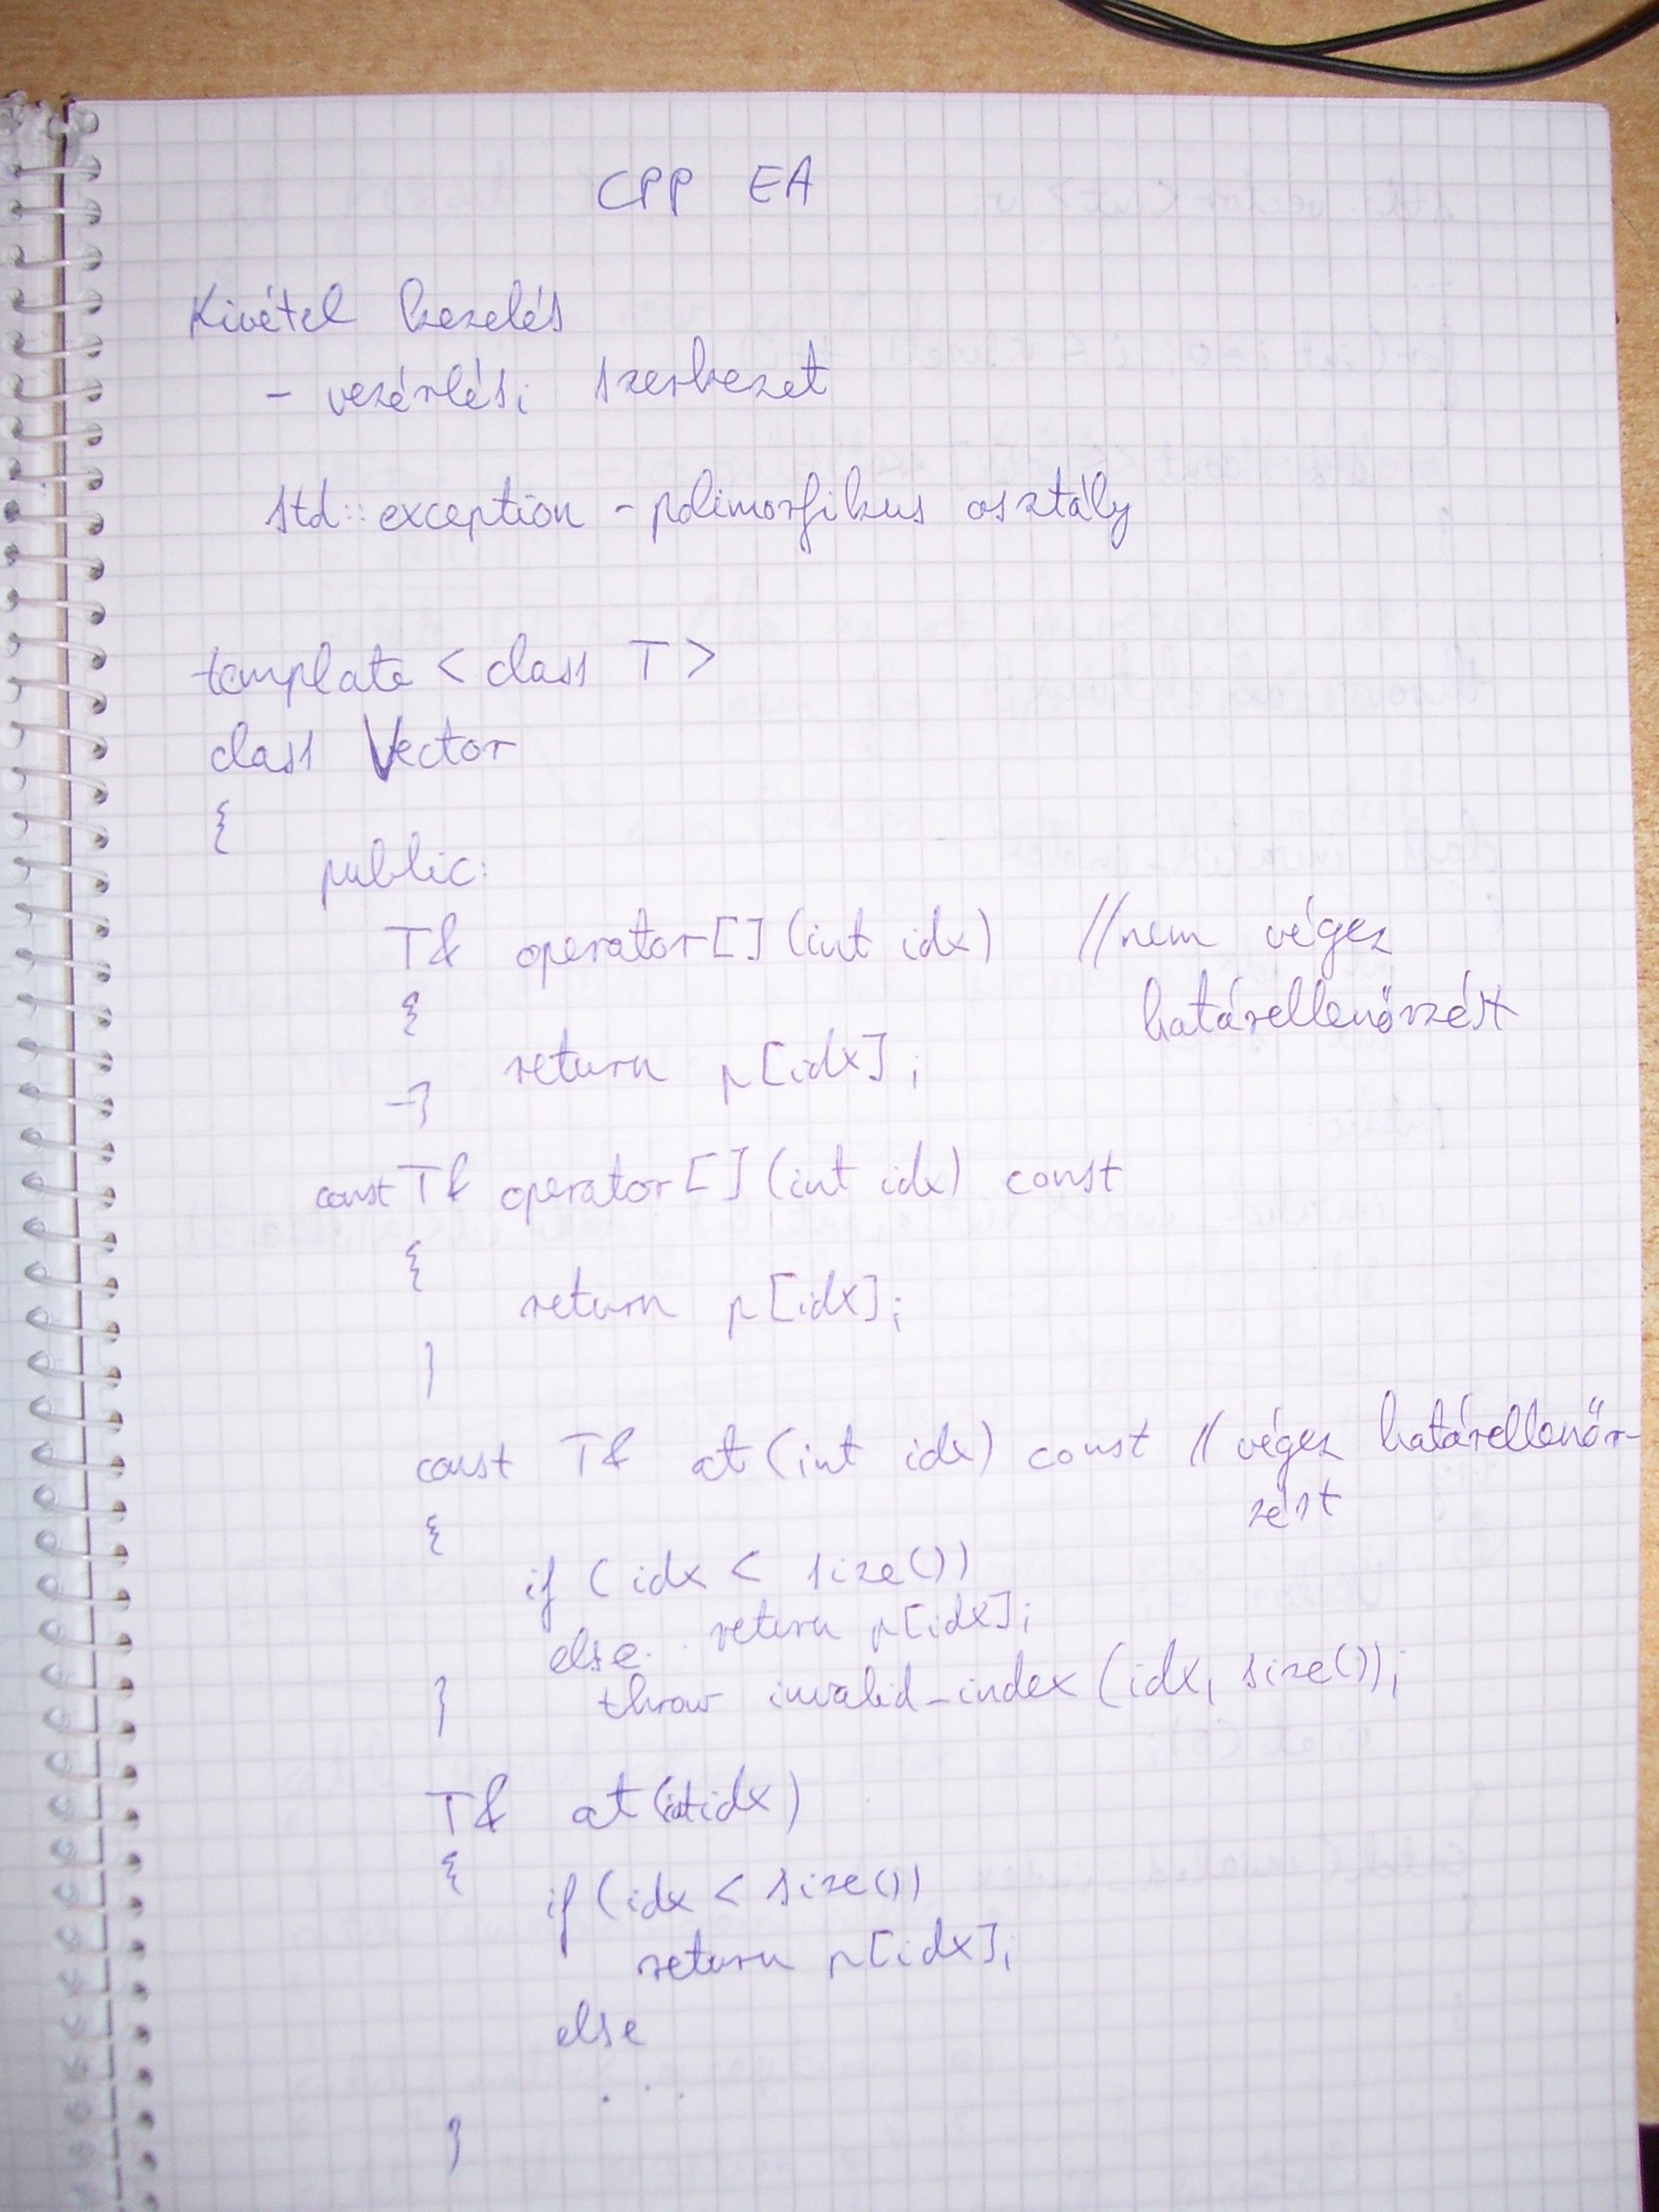 CPP EA
Kivétel kezelés
- vezérlési szerkezet
std::exception - polimorfikus osztály
template < class T >
class Vector
{
public:
T& operator[](int idx) //nem végez
határellenőrzést
{
return p[idx];
}
const T& operator[](int idx) const
{
return p[idx];
}
const T& at(int idx) const // végez határellenőr-
zést
{
if (idx < size())
return p[idx];
else
throw invalid_index(idx, size());
}
T& at(int idx)
{
if (idx < size())
return p[idx];
else
...
}